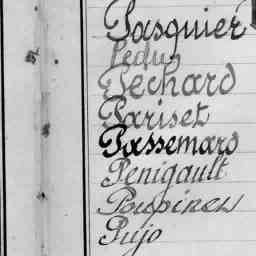 Pasquier
Pedu
Péchard
Pariset
Passemard
Penigault
Poupinel
Pujo